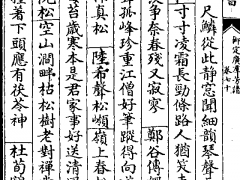 御定廣羣芳譜 卷七十
尺鱗從此靜窓聞細韻琴聲
寸寸凌霜長勁條路人猶笑未
爭奈春殘又寂寥 鄭谷傳
孤峰珍重江僧好筆蹤得向
真松 陸希聲松嶺嶺上春松
苔歲寒本是君家事好送清
松空山澗畔枯松樹老對禪
著下頭應有茯苓神 杜荀